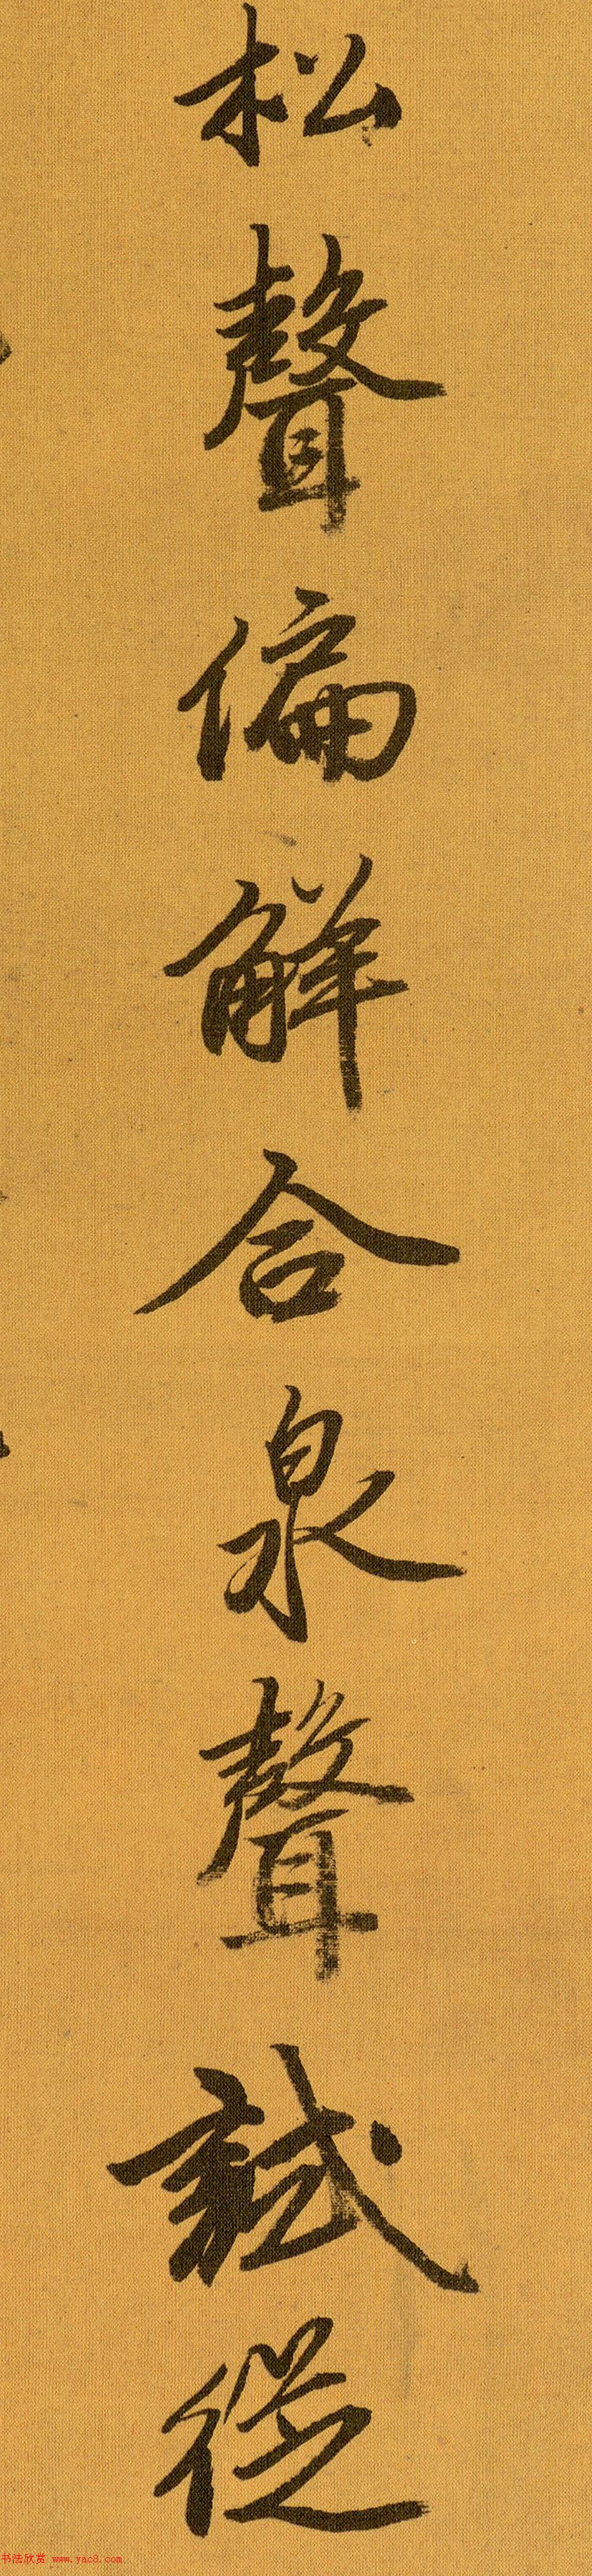 松聲偏解合泉聲試從
书法欣赏 www.yac8.com